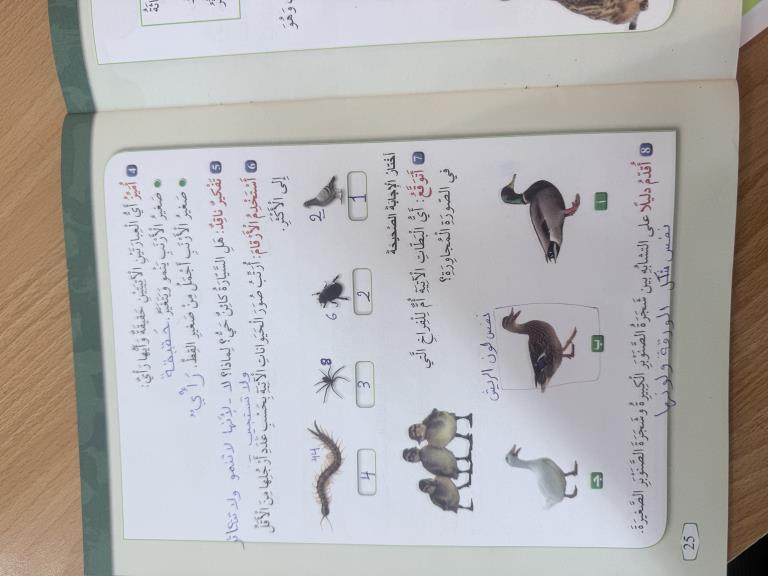 4 أُمَيِّزُ أَيُّ الْعِبارَتَيْنِ الْآتِيَتَيْنِ حَقيقَةٌ وَأَيُّها رَأْيٌ:
صَغيرُ الْأَرْنَبِ يَنْمو وَيَتَغَيَّرُ. حقيقة
صَغيرُ الْأَرْنَبِ أَجْمَلُ مِنْ صَغيرِ الْقِطِّ. رأي
5 تَفْكيرٌ ناقِدٌ: هَلِ السَّيّارَةُ كائِنٌ حَيٌّ؟ لِماذا؟ لا - لأنها لا تنمو ولا تتكاثر
ولا تستجيب
6 أَسْتَخْدِمُ الْأَرْقامَ: أُرَتِّبُ صُوَرَ الْحَيَواناتِ الْآتِيَةِ بِحَسَبِ عَدَدِ أَرْجُلِها مِنَ الْأَقَلِّ
إِلى الْأَكْثَرِ.
2 6 8 44
1 2 3 4
أَخْتارُ الْإِجابَةَ الصَّحيحَةَ
7 أَتَوَقَّعُ: أَيُّ الْبَطّاتِ الْآتِيَةِ أُمٌّ لِلْفِراخِ الَّتي
في الصّورَةِ الْمُجاوِرَةِ؟
نفس لون الريش
أ ب جـ
8 أُقَدِّمُ دَليلًا عَلى التَّشابُهِ بَيْنَ شَجَرَةِ الصَّنَوْبَرِ الْكَبيرَةِ وَشَجَرَةِ الصَّنَوْبَرِ الصَّغيرَةِ.
نفس شكل الورقة ولونها
25